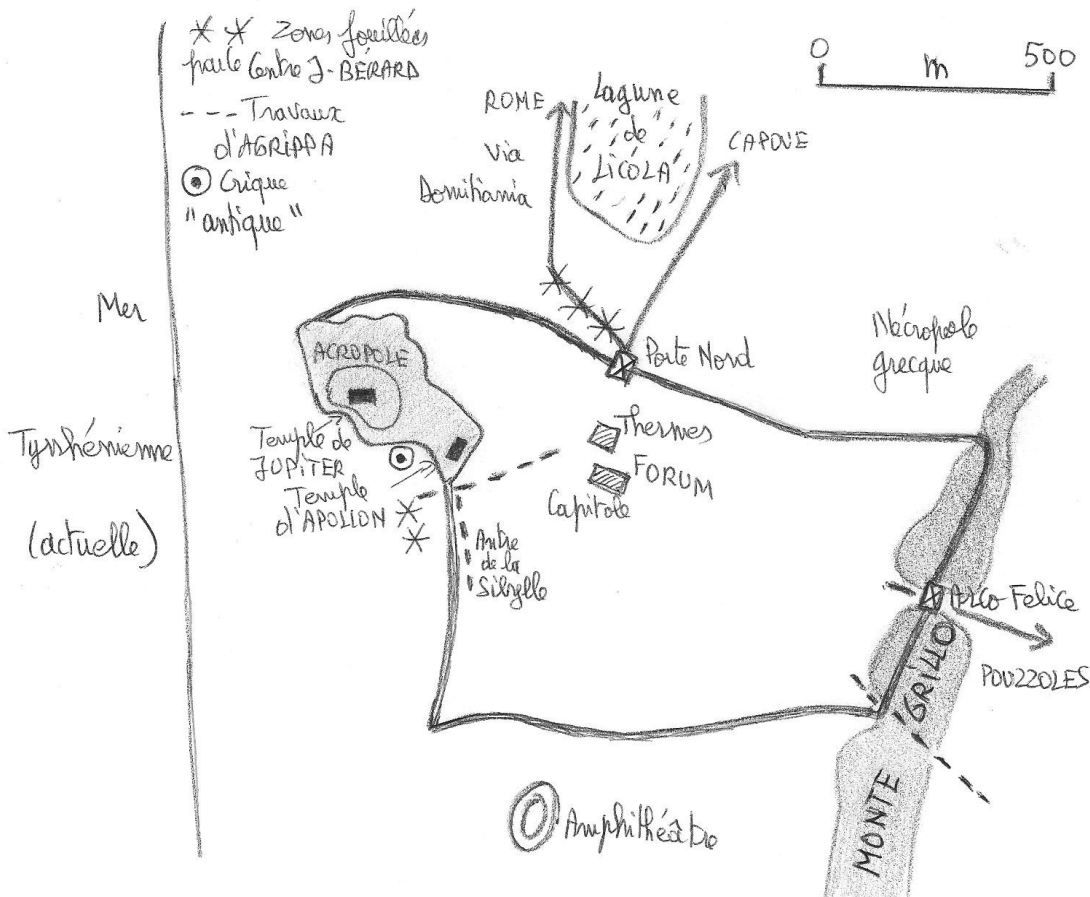 Zones fouillées
par le Centre J-BÉRARD
Travaux
d'AGRIPPA
Crique
"antique"
0 m 500
ROME
Via
Domitiania
Lagune
de
LICOLA
CAPOUE
Mer
Tyrrhénienne
(actuelle)
ACROPOLE
Porte Nord
Nécropole
grecque
Temple de
JUPITER
Temple
d'APOLLON
Thermes
FORUM
Capitole
Antre
de la
Sibylle
Arco Felice
POUZZOLES
MONTE GRILLO
Amphithéâtre